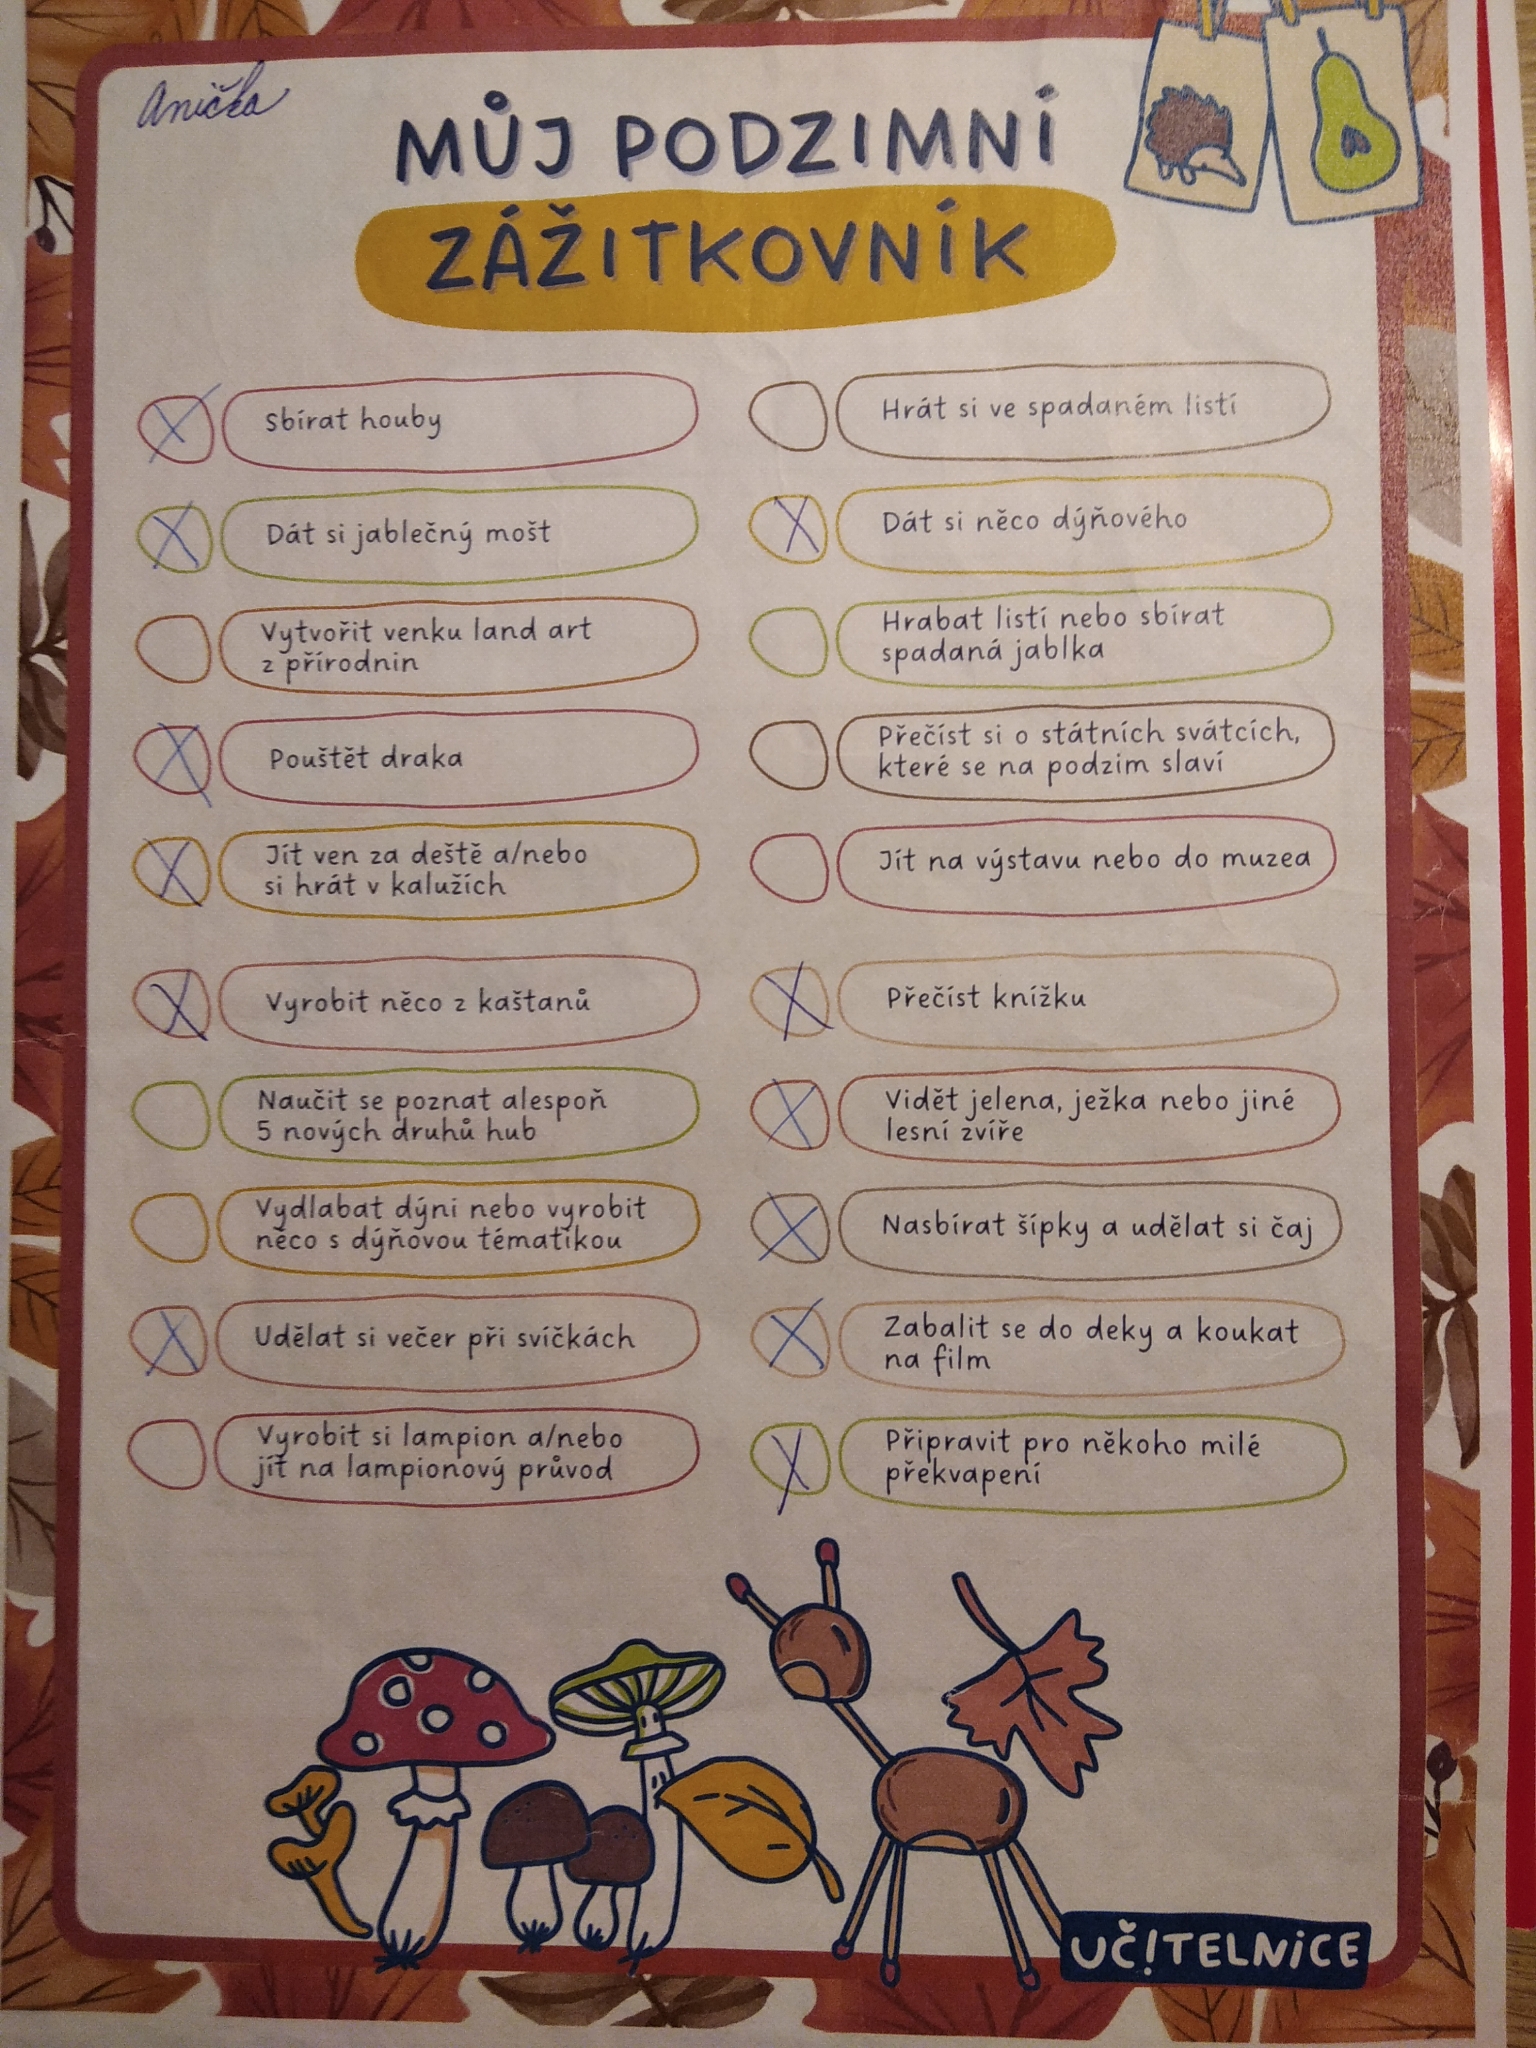 Anička
MŮJ PODZIMNÍ
ZÁŽITKOVNÍK
Sbírat houby
Dát si jablečný mošt
Vytvořit venku land art
z přírodnin
Pouštět draka
Jít ven za deště a/nebo
si hrát v kalužích
Vyrobit něco z kaštanů
Naučit se poznat alespoň
5 nových druhů hub
Vydlabat dýni nebo vyrobit
něco s dýňovou tématikou
Udělat si večer při svíčkách
Vyrobit si lampion a/nebo
jít na lampionový průvod
Hrát si ve spadaném listí
Dát si něco dýňového
Hrabat listí nebo sbírat
spadaná jablka
Přečíst si o státních svátcích,
které se na podzim slaví
Jít na výstavu nebo do muzea
Přečíst knížku
Vidět jelena, ježka nebo jiné
lesní zvíře
Nasbírat šípky a udělat si čaj
Zabalit se do deky a koukat
na film
Připravit pro někoho milé
překvapení
UČ!TELNiCE